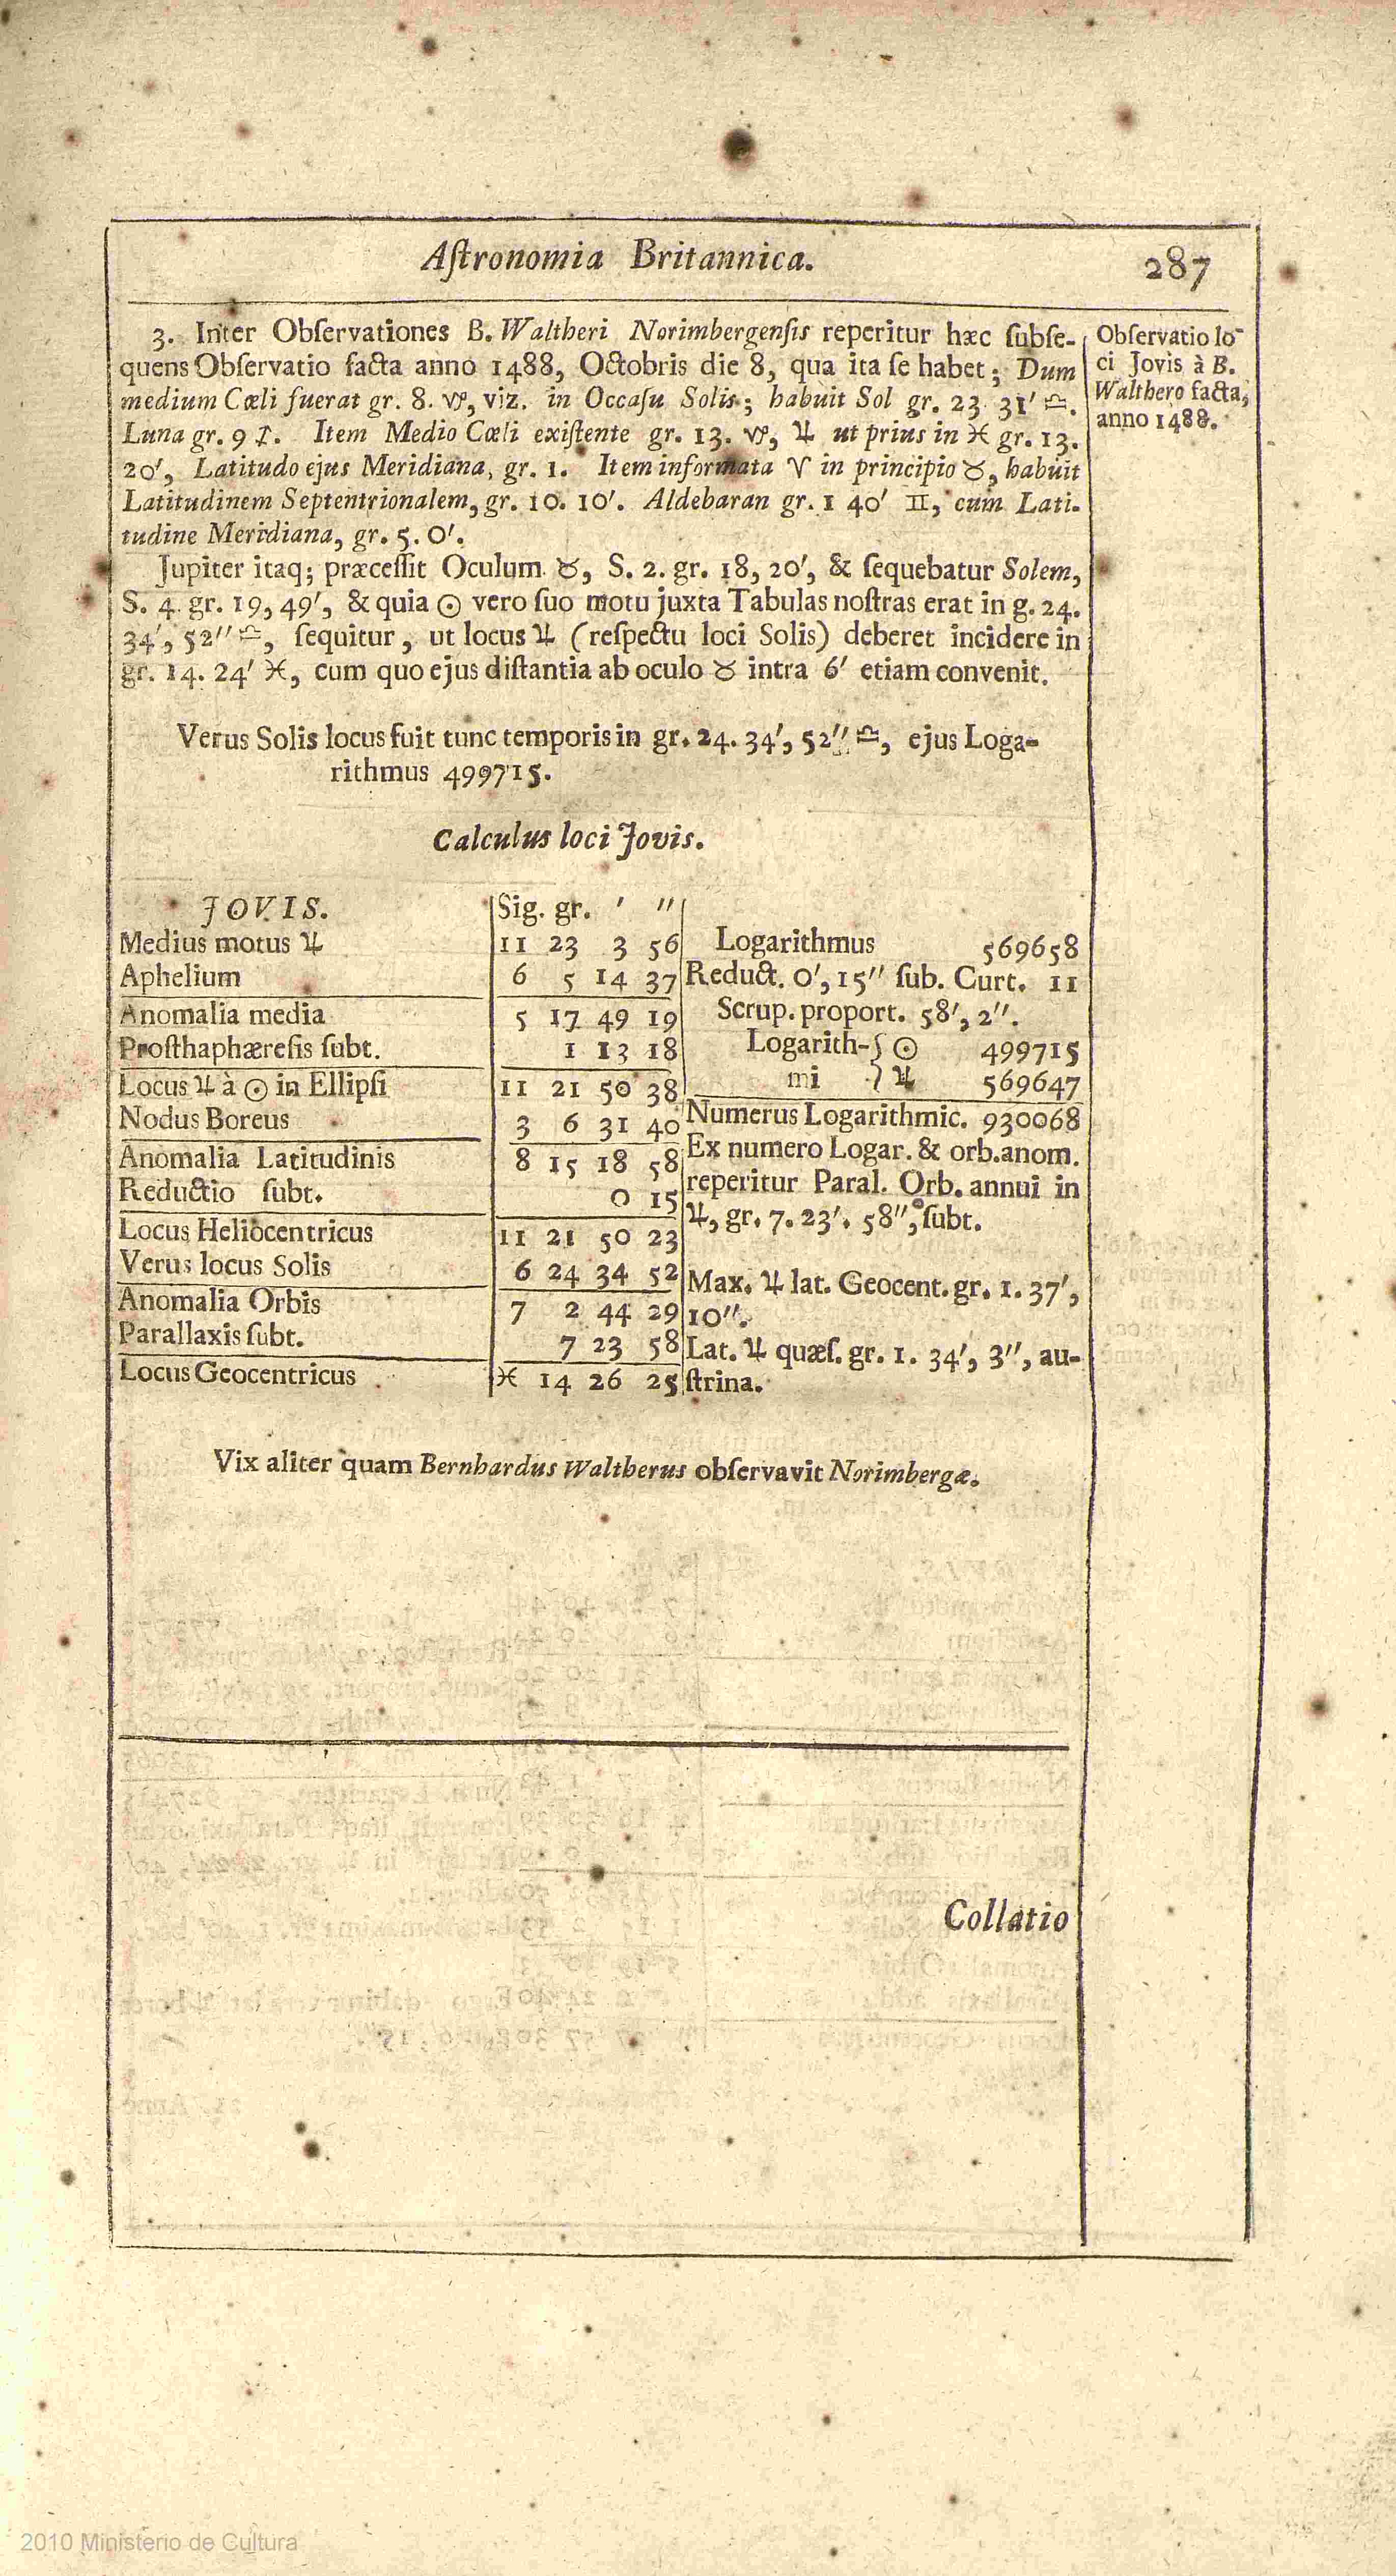 Aſtronomia Britannica. 287
3. Inter Obſervationes B. Waltheri Norimbergenſis reperitur hæc ſubſe-
quens Obſervatio facta anno 1488, Octobris die 8, qua ita ſe habet; Dum
medium Cœli fuerat gr. 8. ♑, viz. in Occaſu Solis; habuit Sol gr. 23 31′ ♎.
Luna gr. 9 ♐. Item Medio Cœli exiſtente gr. 13. ♑, ♃ ut prius in ♓ gr. 13.
20′, Latitudo ejus Meridiana, gr. 1. Item informata ♈ in principio ♉, habuit
Latitudinem Septentrionalem, gr. 10. 10′. Aldebaran gr. 1 40′ ♊, cum Lati-
tudine Meridiana, gr. 5. 0′.
Obſervatio lo-
ci Jovis à B.
Walthero facta,
anno 1488.
Jupiter itaq; præceſſit Oculum ♉, S. 2. gr. 18, 20′, & ſequebatur Solem,
S. 4. gr. 19, 49′, & quia ☉ vero ſuo motu juxta Tabulas noſtras erat in g. 24.
34′, 52″ ♎, ſequitur, ut locus ♃ (reſpectu loci Solis) deberet incidere in
gr. 14. 24′ ♓, cum quo ejus diſtantia ab oculo ♉ intra 6′ etiam convenit.
Verus Solis locus fuit tunc temporis in gr. 24. 34′, 52″ ♎, ejus Loga-
rithmus 499715.
Calculus loci Jovis.
JOVIS. Sig. gr. ′ ″
Medius motus ♃ 11 23 3 56 Logarithmus 569658
Aphelium 6 5 14 37 Reduct. 0′, 15″ ſub. Curt. 11
Anomalia media 5 17 49 19 Scrup. proport. 58′, 2″.
Proſthaphæreſis ſubt. 1 13 18 Logarith- { ☉ 499715
Locus ♃ à ☉ in Ellipſi 11 21 50 38 mi } ♃ 569647
Nodus Boreus 3 6 31 40 Numerus Logarithmic. 930068
Anomalia Latitudinis 8 15 18 58 Ex numero Logar. & orb. anom.
Reductio ſubt. 0 15 reperitur Paral. Orb. annui in
Locus Heliocentricus 11 21 50 23 ♃, gr. 7. 23′. 58″, ſubt.
Verus locus Solis 6 24 34 52 Max. ♃ lat. Geocent. gr. 1. 37′,
Anomalia Orbis 7 2 44 29 10″.
Parallaxis ſubt. 7 23 58 Lat. ♃ quæſ. gr. 1. 34′, 3″, au-
Locus Geocentricus ♓ 14 26 25 ſtrina.
Vix aliter quam Bernhardus Waltherus obſervavit Norimbergæ.
Collatio
2010 Ministerio de Cultura